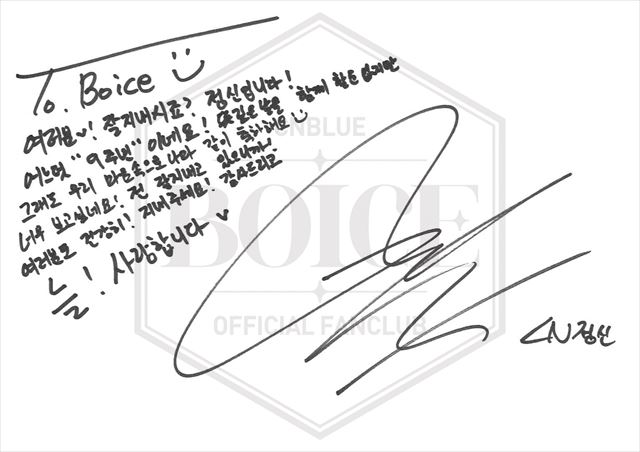 To. Boice
여러분♥! 잘지내시죠? 정신입니다!
어느덧 "9주년"이네요! 뜻깊은 날을 함께 할순 없지만
그래도 우리 마음속으로나마 같이 축하해요
너무 보고싶네요! 전 잘지내고 있으니까!
여러분도 건강히! 지내주세요! 감사드리고
늘! 사랑합니다♥
CNBLUE
BOICE
OFFICIAL FANCLUB
CN정신